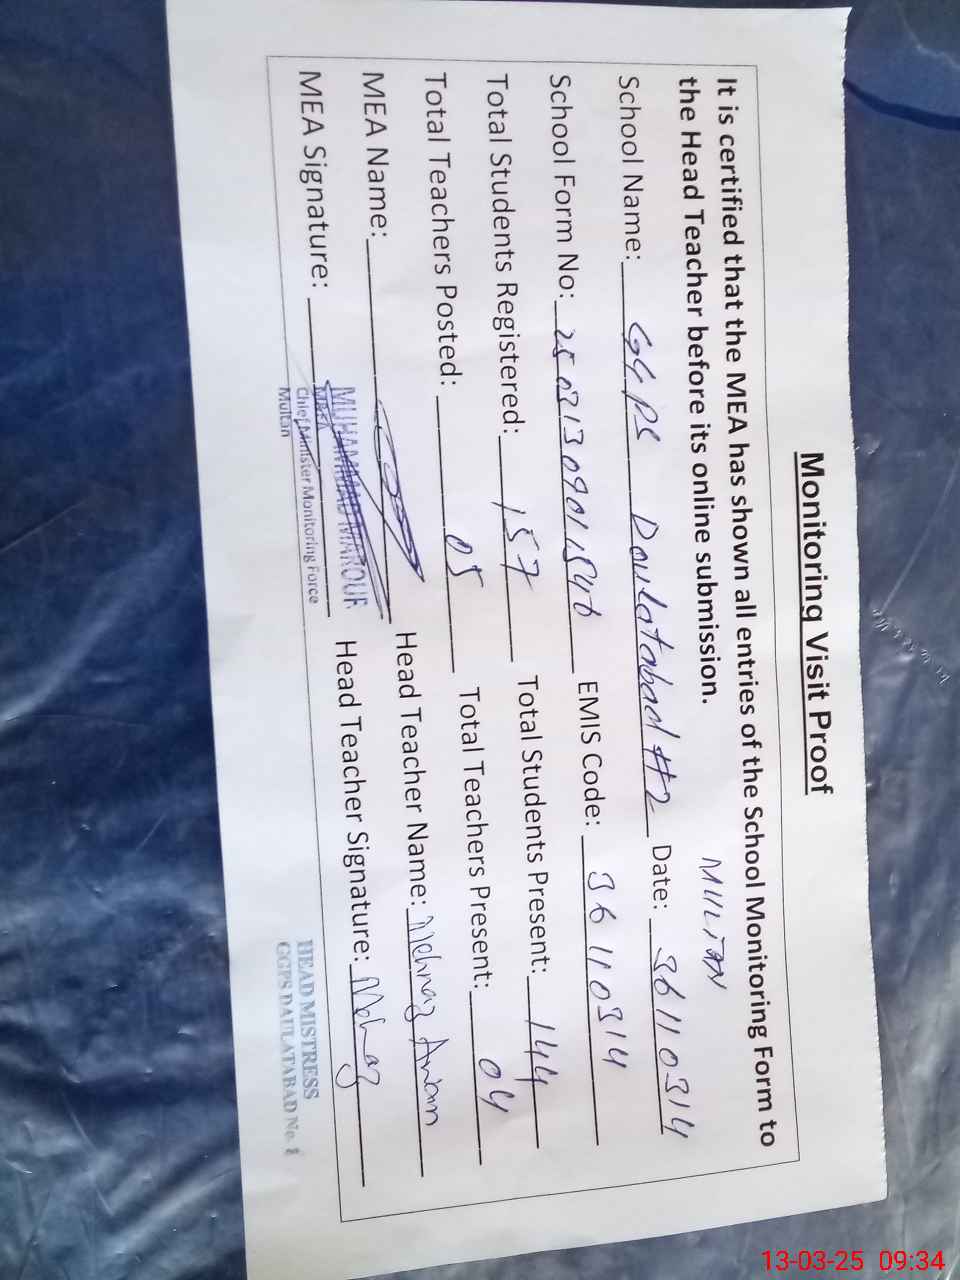 Monitoring Visit Proof
It is certified that the MEA has shown all entries of the School Monitoring Form to
the Head Teacher before its online submission.
MULTAN
School Name: GGPS Doulatabad #2 Date: 36110314
School Form No: EMIS Code: 36110314
Total Students Registered: 157 Total Students Present: 144
Total Teachers Posted: 05 Total Teachers Present: 04
MEA Name: Head Teacher Name: Mehnaz Anam
MEA Signature: Head Teacher Signature: Mehnaz
MUHAMMAD MAROUF
MEA
Chief Minister Monitoring Force
Multan
HEAD MISTRESS
GGPS DAULATABAD No.
13-03-25 09:34